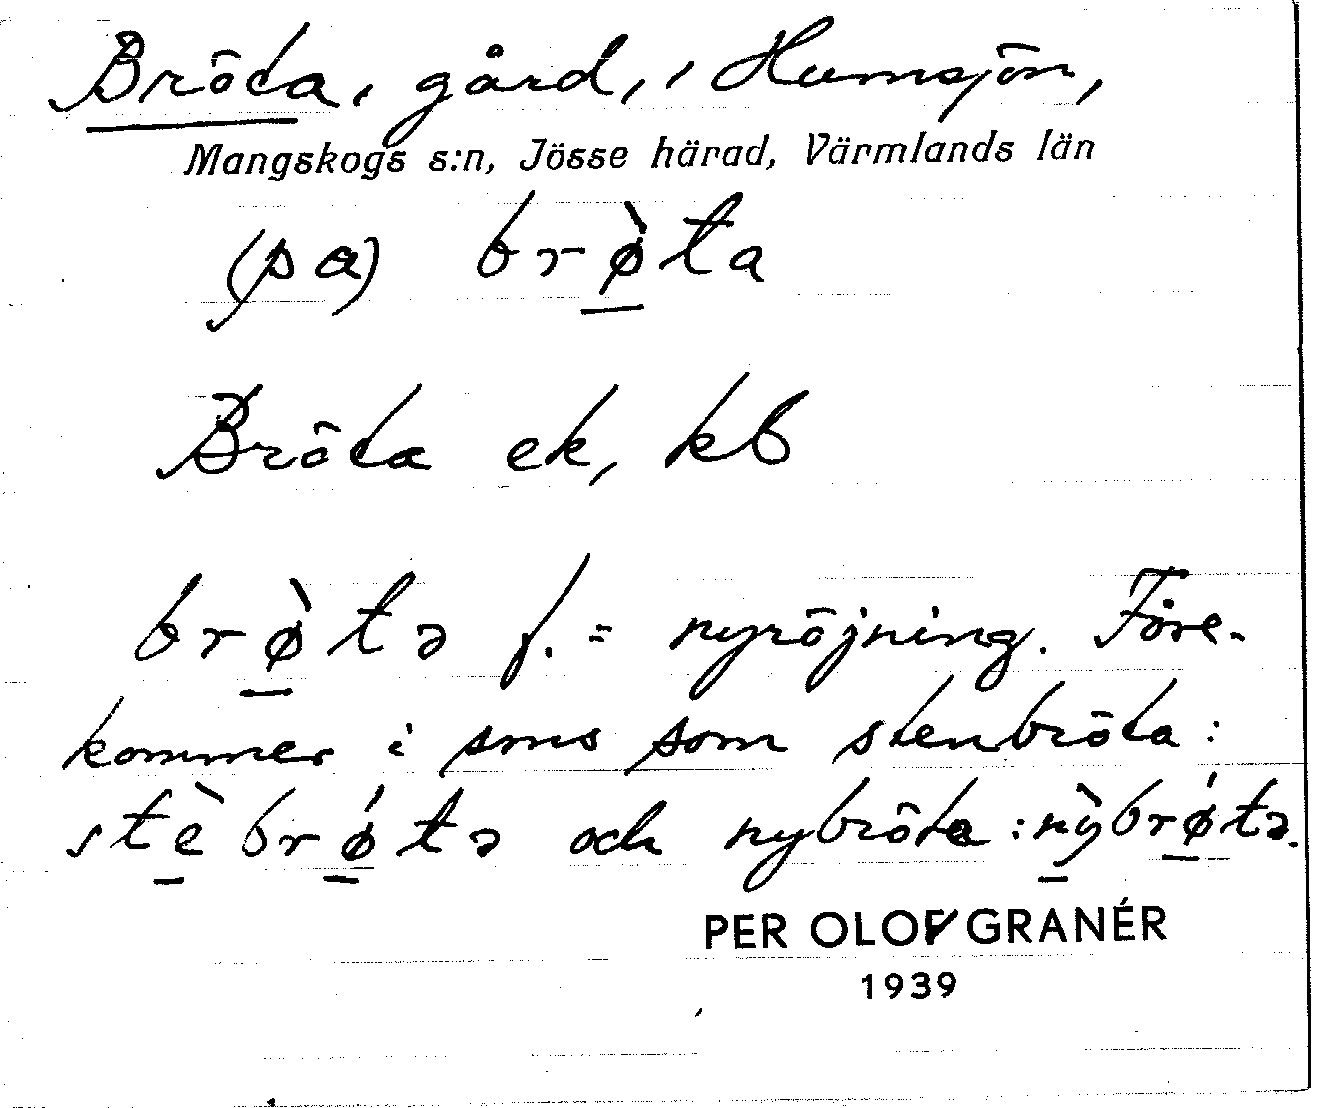 Bröta, gård, i Humsjön,
Mangskogs s:n, Jösse härad, Värmlands län
(pa) brø̀ta
Bröta ek, kb
brø̀tə f. = nyröjning. Före-
kommer i sms som stenbröta:
stèbrǿtə och nybröta: nỳbrǿtə.
PER OLOF GRANÉR
1939